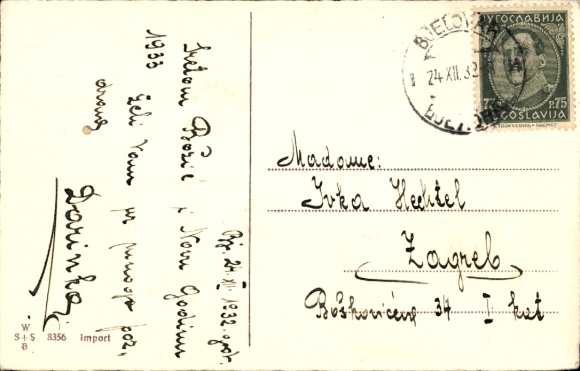 Bjz. 24. XII. 1932. god.
Sretan Božić i Novu Godinu
1933 želi Vam uz mnogo poz.
Darinka
W
S+S 8356 Import
B
BJELOVAR
24 XII. 32
ЈУГОСЛАВИЈА
P.75
JUGOSLAVIJA
Madame:
Ivka Hechtel
Zagreb
Boškovićeva 34 I kat